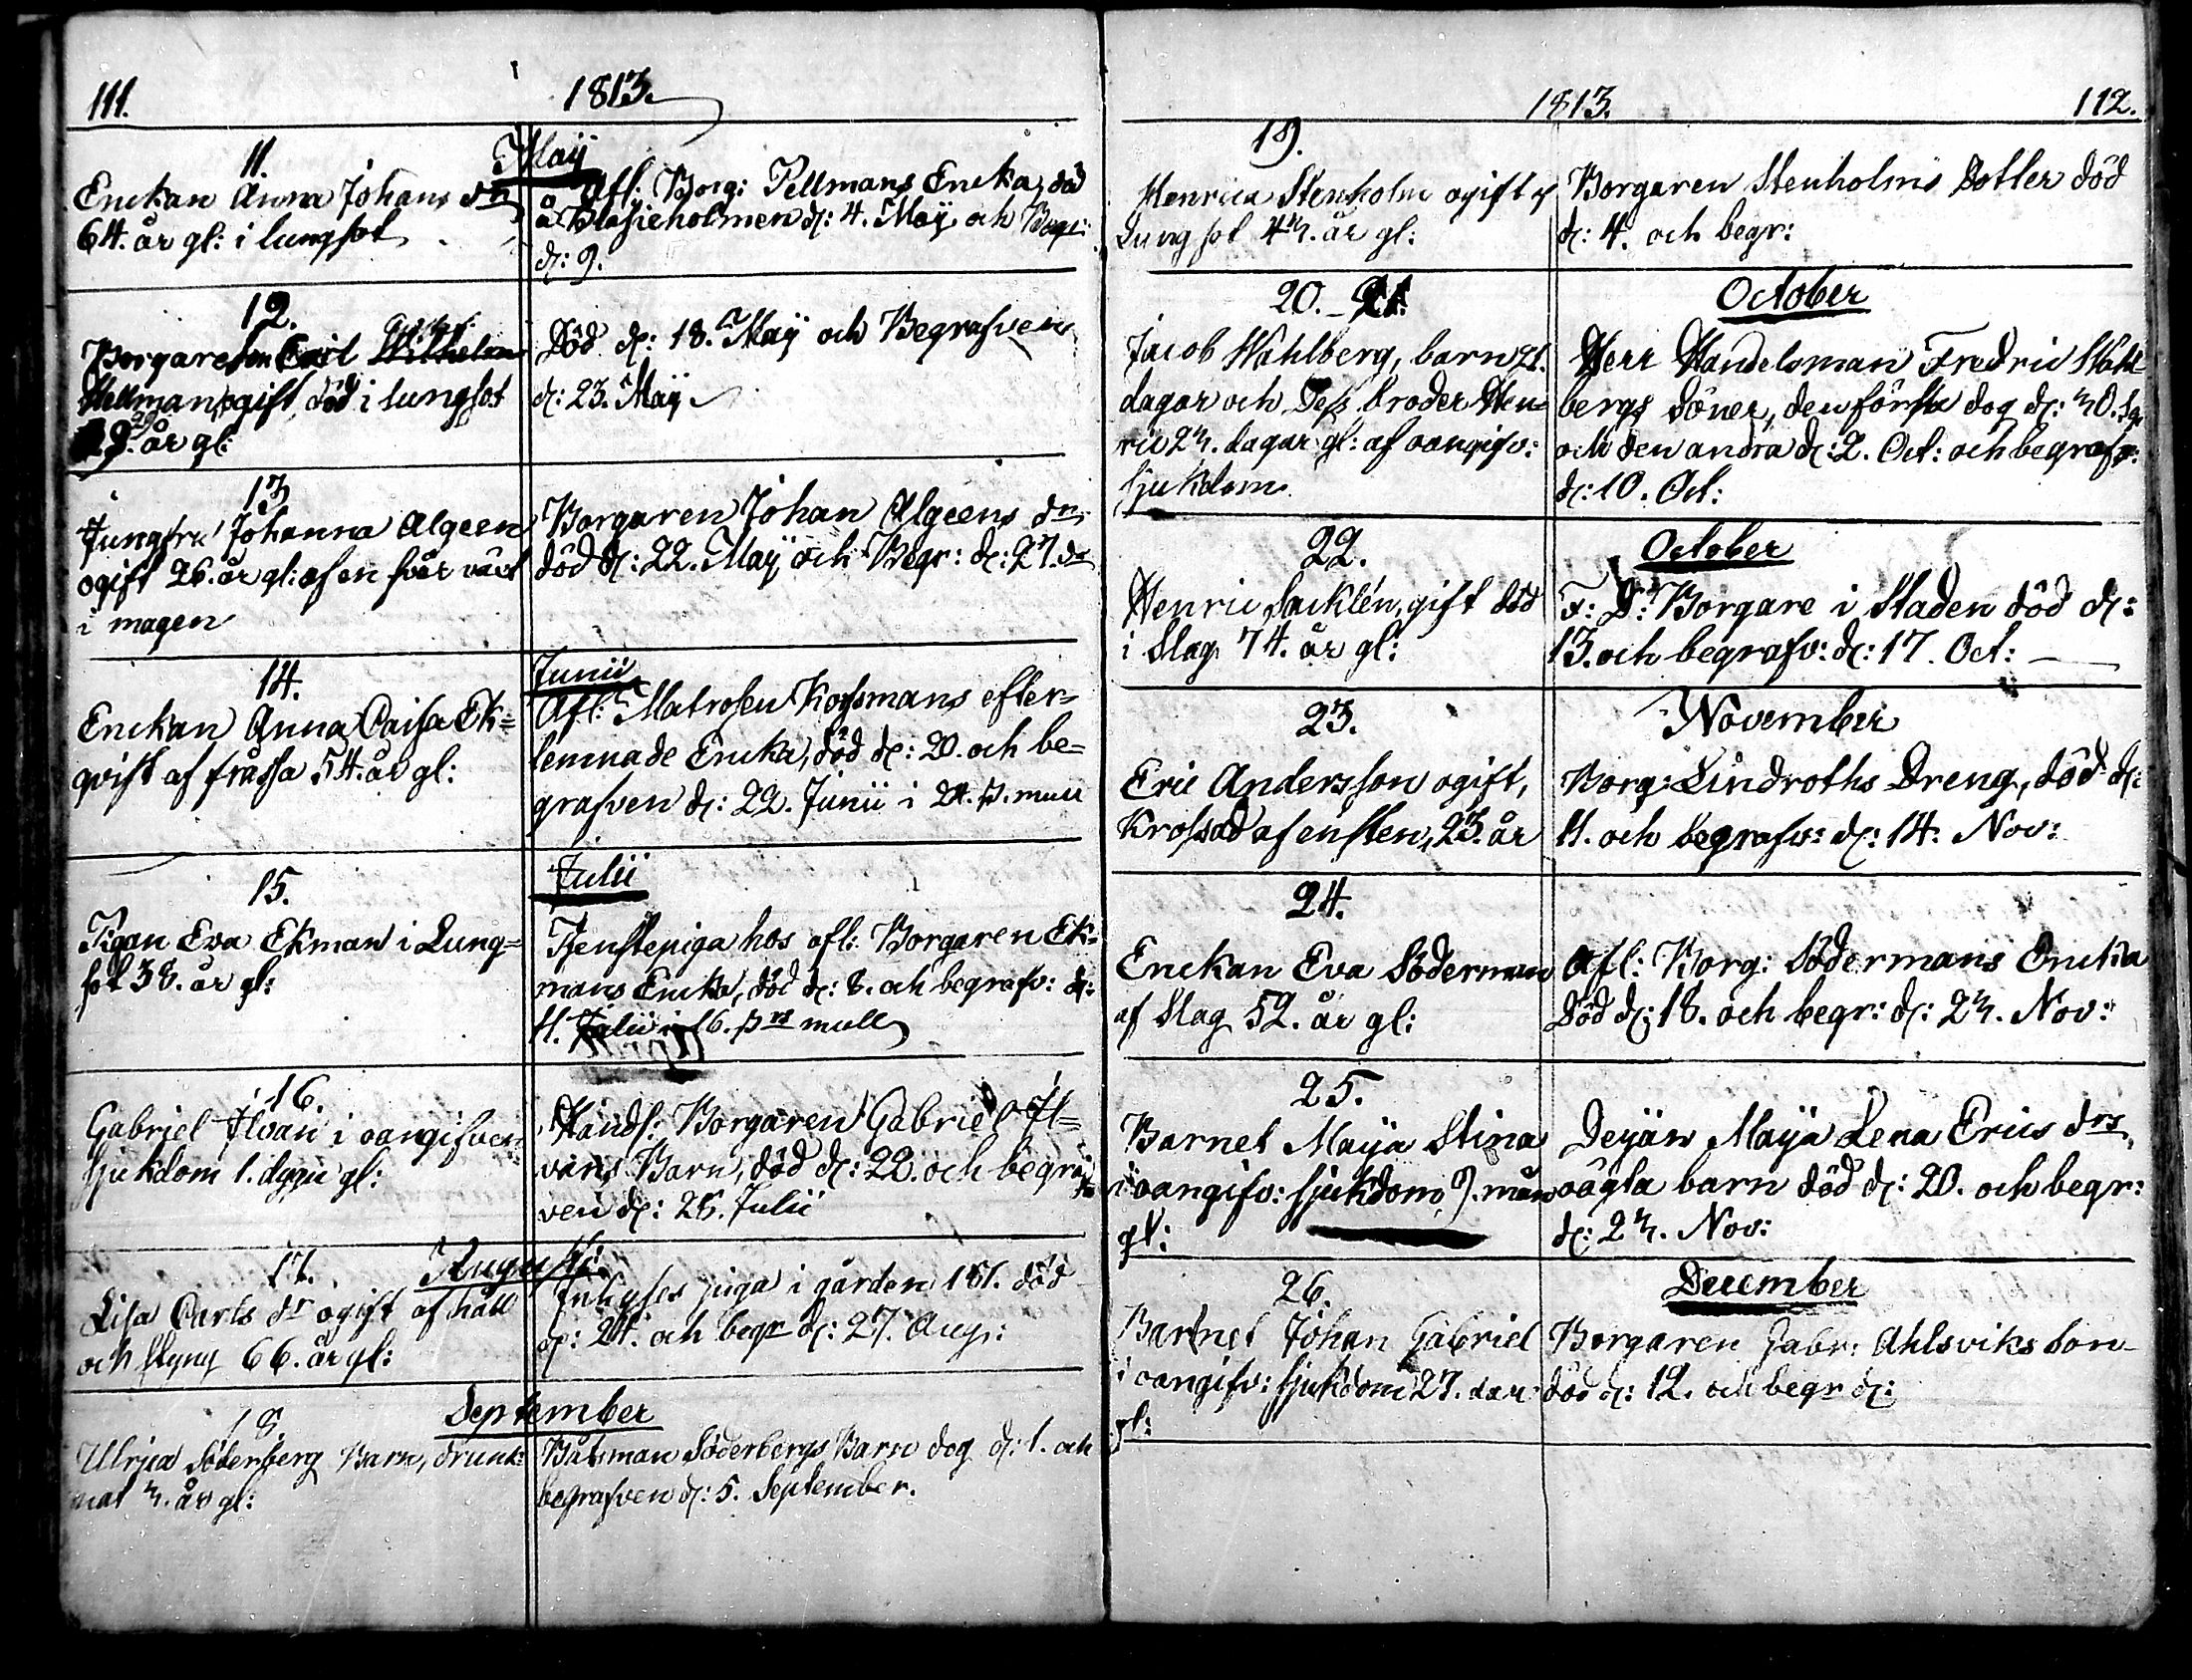 111.
1813.
Maÿ
11.
Enckan Anna Johans dr
64. år gl: i lungsot
Afl: Borg: Pellmans Encka, död
å Blasieholmen d: 4. Maÿ och Begr:
d: 9.
12.
Borgaren
Hellman, ogift, död i lungsot
29. år gl:
Död d: 18. Maÿ och Begrafven
d: 23. Maÿ.
13
Jungfru Johanna Algeen
ogift 26. år gl: af en svår värk
i magen
Borgaren Johan Algeens dr
död d: 22. Maÿ och Begr: d: 27. do
14.
Enckan Anna Caisa Ek=
qvist af fråssa 54. år gl:
Junii
Afl: Matrosen Korsmans efter=
lemnade Encka, död d: 20. och be=
grafven d: 22. Junii i 24. p. mull
15.
Pigan Eva Ekman i Lung=
sot 38. år gl:
Julii
Tjenstepiga hos afl: Borgaren Ek=
mans Encka, död d: 8. och begrafv: d:
11. Julii i 16. prs mull
16.
Gabriel Ilvan i oangifven
sjukdom 1. dygn gl:
Handl: Borgaren Gabriel Il=
vans Barn, död d: 22. och begraf
ven d: 25. Julii
17.
Augusti
Lisa Carls dr ogift af håll
och styng 66. år gl:
Inhyses piga i gården 151. död
d: 24. och begr d: 27. Aug:
18
September
Ulrica Söderberg Barn, drunk=
nat 3. år gl:
Båtsman Söderbergs Barn dog d: 1. och
begrafven d: 5. September.
1813.
112.
19.
Henrica Stenholm ogift af
Lungsot 43. år gl:
Borgaren Stenholms Dotter död
d: 4. och begr:
20. - 21.
October
Jacob Wahlberg, barn 21.
dagar och Dess broder Hen=
ric 23. dagar gl: af oangifv:
sjukdom
Herr Handelsman Fredric Wahl=
bergs Söner, den förste dog d: 30. Sep
och den andra d: 2. Oct: och begrafv:
d: 10. Oct:
22.
October
Henric Sacklén, gift död
i Slag 74. år gl:
F: D: Borgare i Staden död d:
13. och begrafv: d: 17. Oct:
23.
November
Eric Andersson ogift,
Krossad af en sten, 23. år
Borg: Lindroths Dreng, död d:
11. och begrafv: d: 14. Nov:
24.
Enckan Eva Söderman
af Slag 52. år gl:
Afl: Borg: Södermans Encka
Död d: 18. och begr: d: 23. Nov:
25.
Barnet Maÿa Stina
i oangifv: sjukdom 7. mån
gl:
Deÿan Maÿa Lena Erics drs
oägta barn död d: 20. och begr:
d: 23. Nov:
26.
December
Barnet Johan Gabriel
i oangifv: sjukdom 27. dar
gl:
Borgaren Gabr: Ahlsviks Son
död d: 12. och begr d: